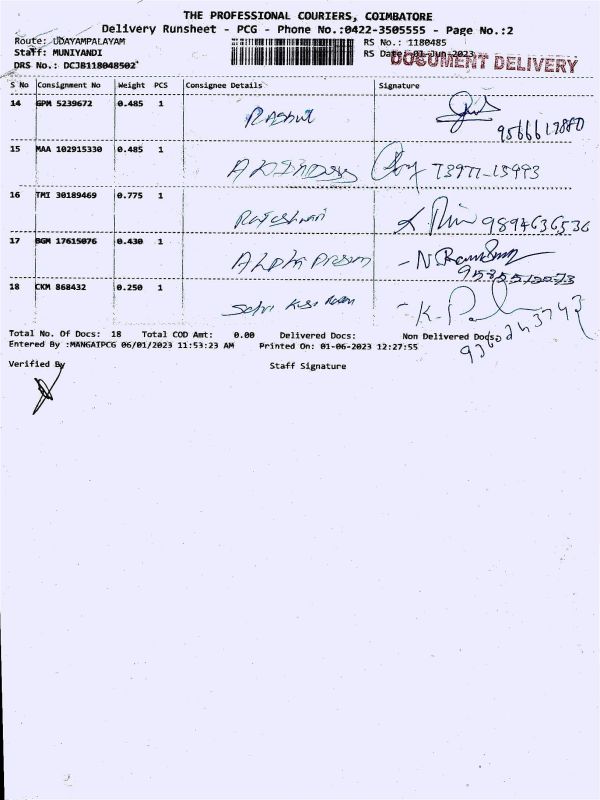 THE PROFESSIONAL COURIERS, COIMBATORE
Delivery Runsheet - PCG - Phone No.:0422-3505555 - Page No.:2
Route: UDAYAMPALAYAM RS No.: 1180485
Staff: MUNIYANDI RS Date: 01-Jun-2023
DOCUMENT DELIVERY
DRS No.: DCJB118048502
S No Consignment No Weight PCS Consignee Details Signature
14 GPM 5239672 0.485 1 Rashul
9566617880
15 MAA 102915330 0.485 1 73977-15993
16 TMI 30189469 0.775 1 Rajeshwari 9894636536
17 BGM 17615076 0.430 1 Alpha
18 CKM 868432 0.250 1
Total No. Of Docs: 18 Total COD Amt: 0.00 Delivered Docs: Non Delivered Docs:
Entered By :MANGATPCG 06/01/2023 11:53:23 AM Printed On: 01-06-2023 12:27:55
Verified By Staff Signature